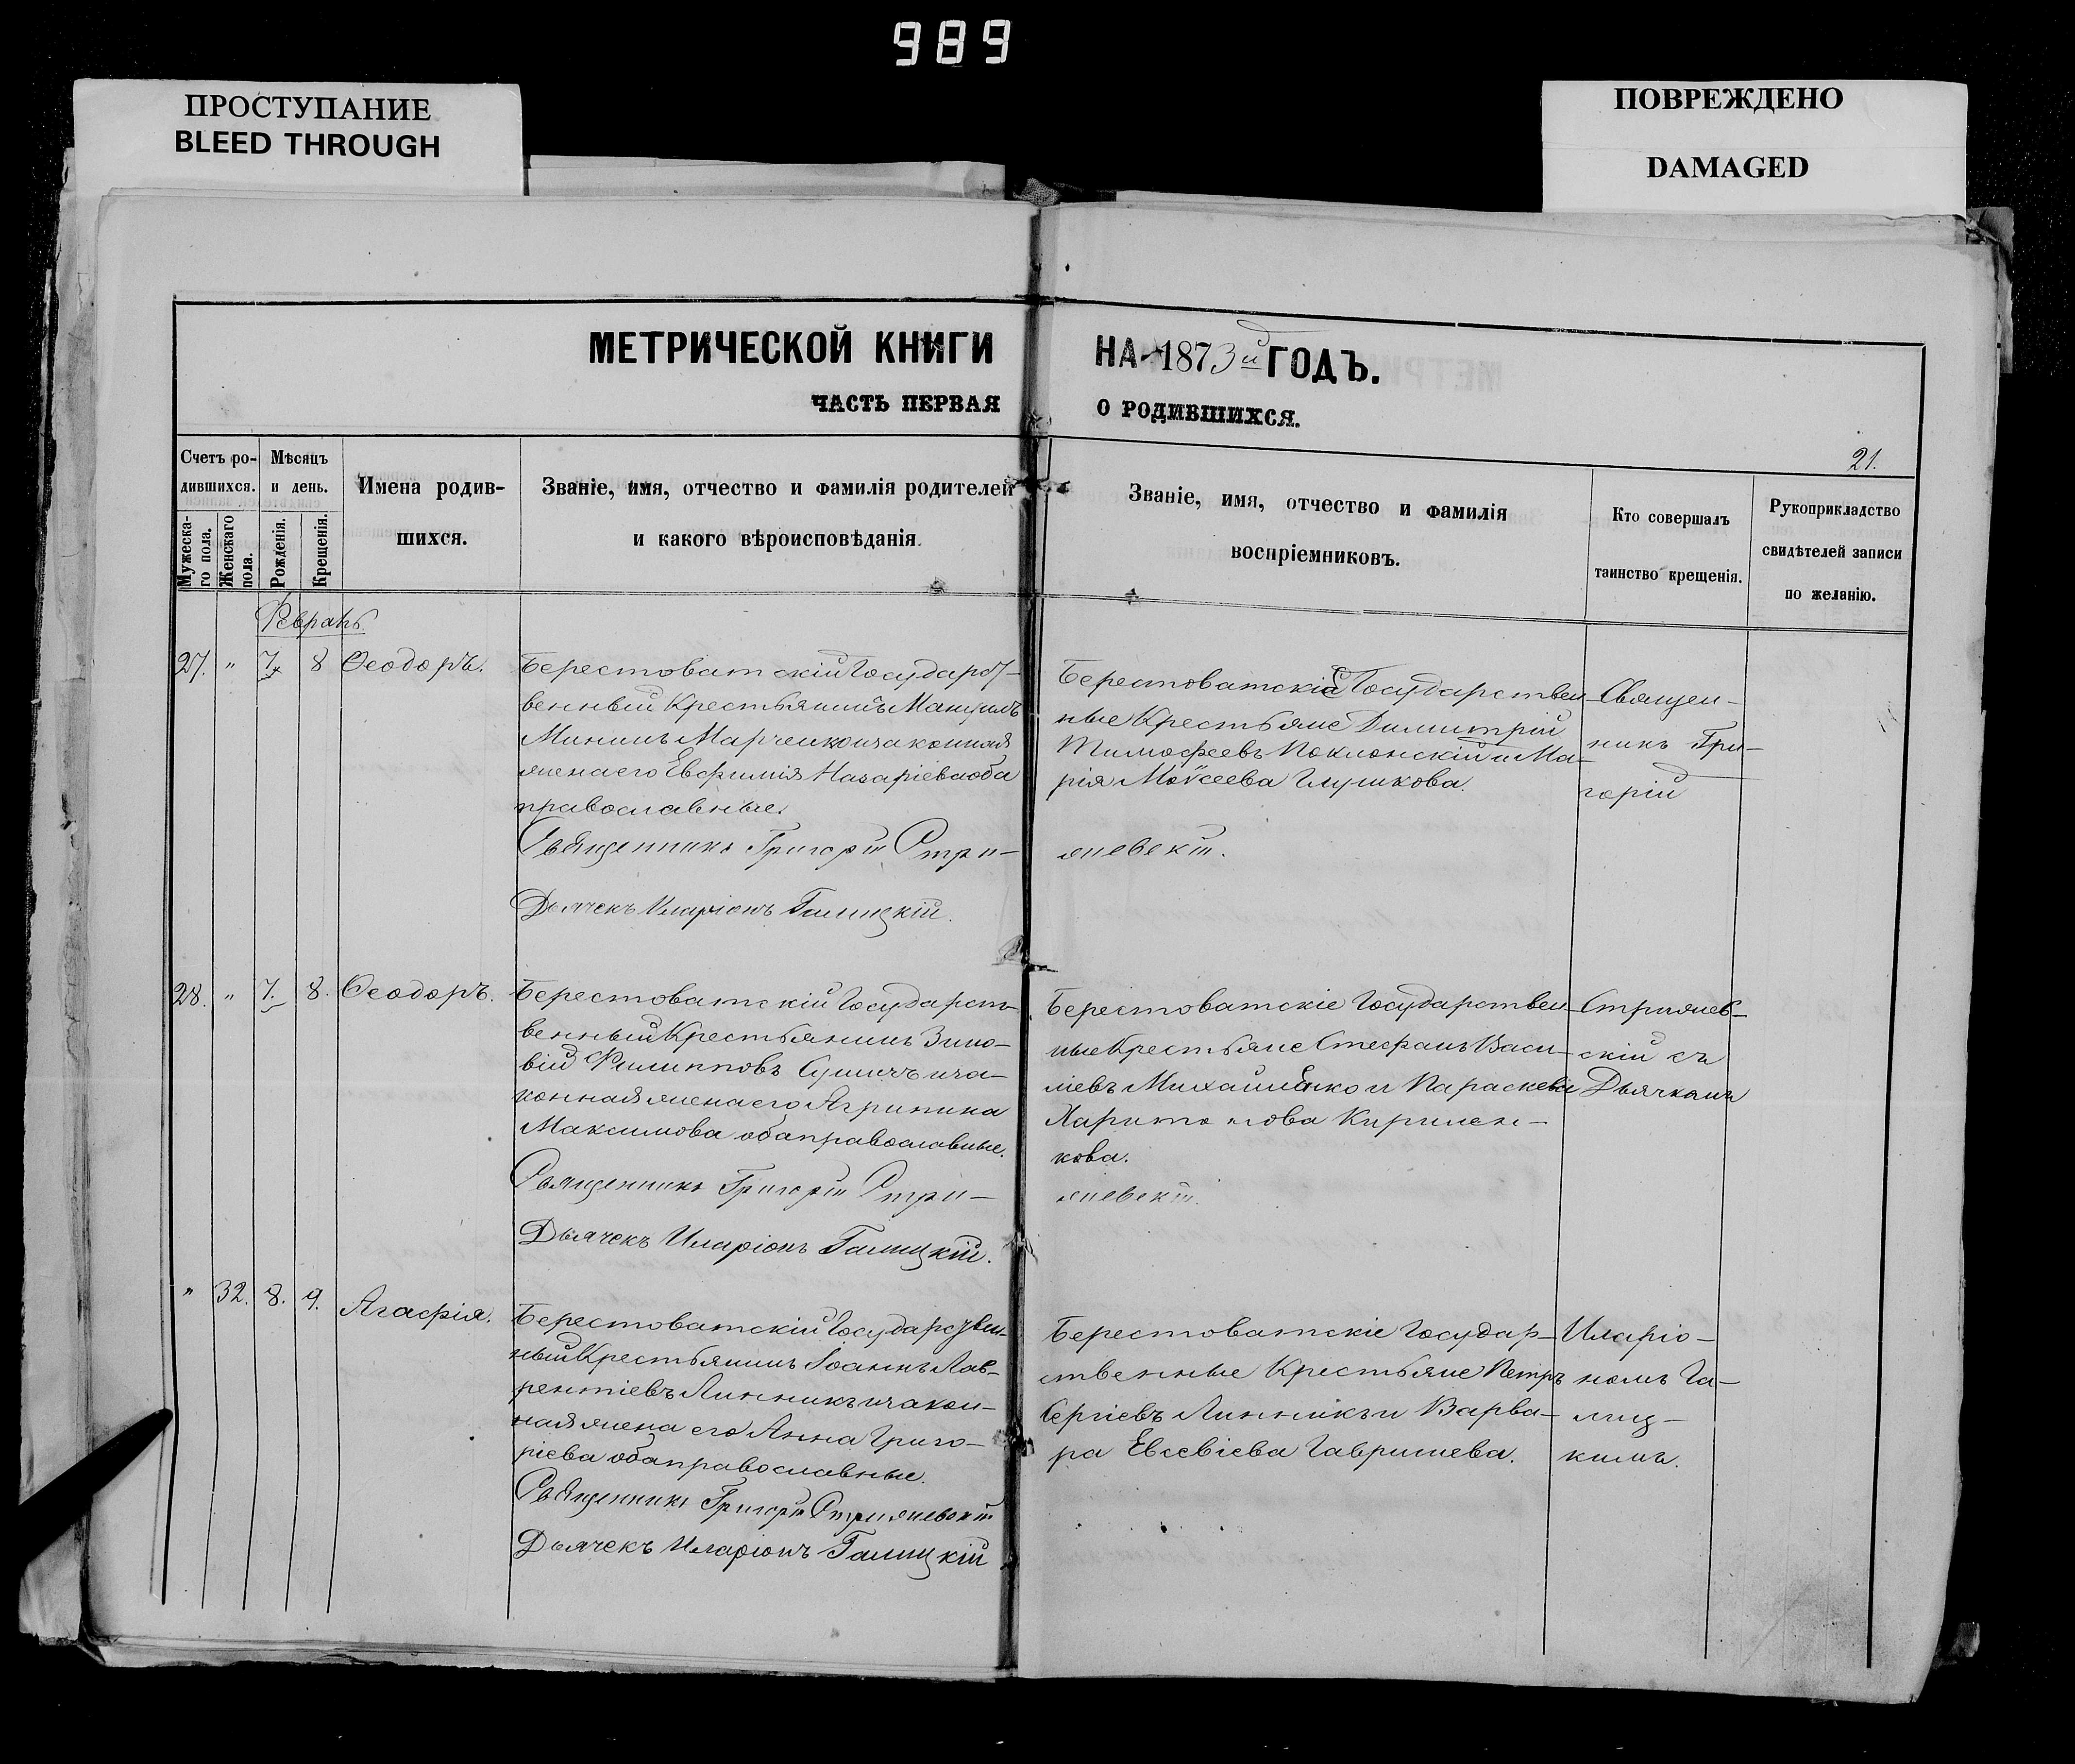 989
ПРОСТУПАНИЕ
BLEED THROUGH
ПОВРЕЖДЕНО
DAMAGED
МЕТРИЧЕСКОЙ КНИГИ НА 1873й ГОДЪ.
ЧАСТЬ ПЕРВАЯ О РОДИВШИХСЯ.
21.
Счетъ ро-
дившихся.
Мужеска-
го пола.
Женскаго
пола.
Мѣсяцъ
и день.
Рожденія.
Крещенія.
Имена родив-
шихся.
Званіе, имя, отчество и фамилія родителей
и какого вѣроисповѣданія.
Званіе, имя, отчество и фамилія
воспріемниковъ.
Кто совершалъ
таинство крещенія.
Рукоприкладство
свидѣтелей записи
по желанію.
27. " 7 8 Ѳеодоръ.
Берестоватскій Государст-
венный Крестьянинъ Мануилъ
Мининъ Марченко и законная
жена его Евфимія Назаріева оба
православные.
Священникъ Григорій Стри-
жневскій.
Дьячекъ Иларіонъ Галицкій.
Берестоватскіе Государствен-
ные Крестьяне Димитрій
Тимофеевъ Поклонскій и Ма-
рія Моѵсеева Глушкова.
Священ-
никъ Гри-
горій
28. " 7. 8. Ѳеодоръ.
Берестоватскій Государст-
венный Крестьянинъ Зино-
вій Филипповъ и за-
конная жена его Агрипина
Максимова оба православные.
Священникъ Григорій Стри-
жневскій.
Дьячекъ Иларіонъ Галицкій.
Берестоватскіе Государствен-
ные Крестьяне Стефанъ Васи-
ліевъ Михайленко и Параскева
Харитонова Кирилен-
кова.
Стрижнев-
скій съ
Дьячкомъ
" 32. 8. 9. Агафія.
Берестоватскій Государствен-
ный Крестьянинъ Іоаннъ Лав-
рентіевъ Линникъ и закон-
ная жена его Анна Григо-
ріева оба православные.
Священникъ Григорій Стрижневскій
Дьячекъ Иларіонъ Галицкій
Берестоватскіе Государ-
ственные Крестьяне Петръ
Сергіевъ Линникъ и Варва-
ра Евсевіева Гавришева.
Иларіо-
номъ Га-
лиц-
кимъ.